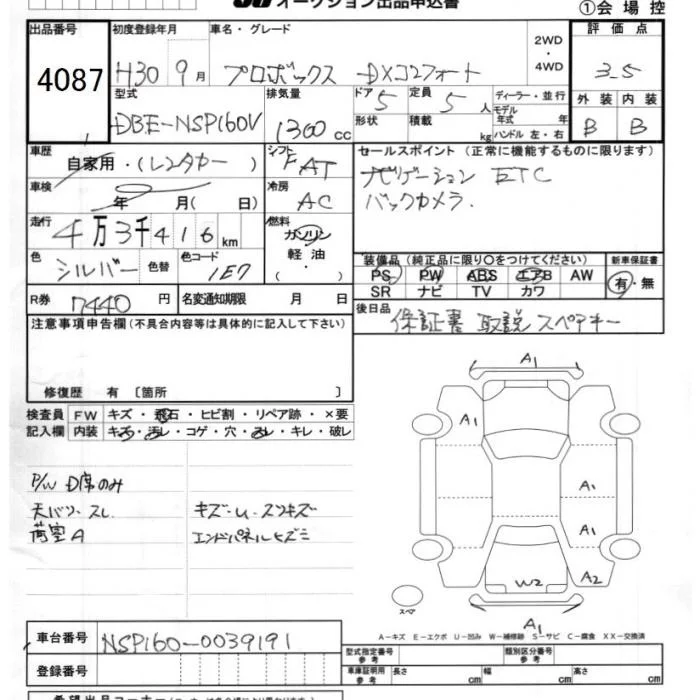 オークション出品申込書
①会場控
出品番号
4087
初度登録年月
H30 9月
車名・グレード
プロボックス DXコンフォート
2WD
4WD
評価点
3.5
型式
DBE-NSP160V
排気量
1300 cc
ドア 5
定員 5 人
形状
積載 kg
ディーラー・並行
モデル年式 年
ハンドル 左・右
外装 内装
B B
車歴
自家用・(レンタカー)
シフト
F AT
セールスポイント (正常に機能するものに限ります)
ナビゲーション ETC
バックカメラ.
車検
年 月( 日)
冷房
AC
走行
4万3千416km
燃料
ガソリン
軽油
( )
色
シルバー
色替
色コード
1E7
装備品 (純正品に限り〇をつけてください)
新車保証書
PS PW ABS エアB AW
SR ナビ TV カワ
有・無
R券 7440 円
名変通知期限 月 日
後日品
保証書 取説 スペアキー
注意事項申告欄 (不具合内容等は具体的に記入して下さい)
修復歴 有 〔箇所 〕
検査員記入欄
FW キズ・飛石・ヒビ割・リペア跡・×要
内装 キズ・汚レ・コゲ・穴・スレ・キレ・破レ
P/W D席のみ
天バリ・スレ
荷室A
キズ・U・スリキズ
エンドパネルヒズミ
A1
A1
A1
A1
W2 A2
A1
スペア
A-キズ E-エクボ U-凹み W-補修跡 S-サビ C-腐食 XX-交換済
車台番号
NSP160-0039191
登録番号
型式指定番号 参考
類別区分番号 参考
車庫証明用 参考
長さ cm 幅 cm 高さ cm